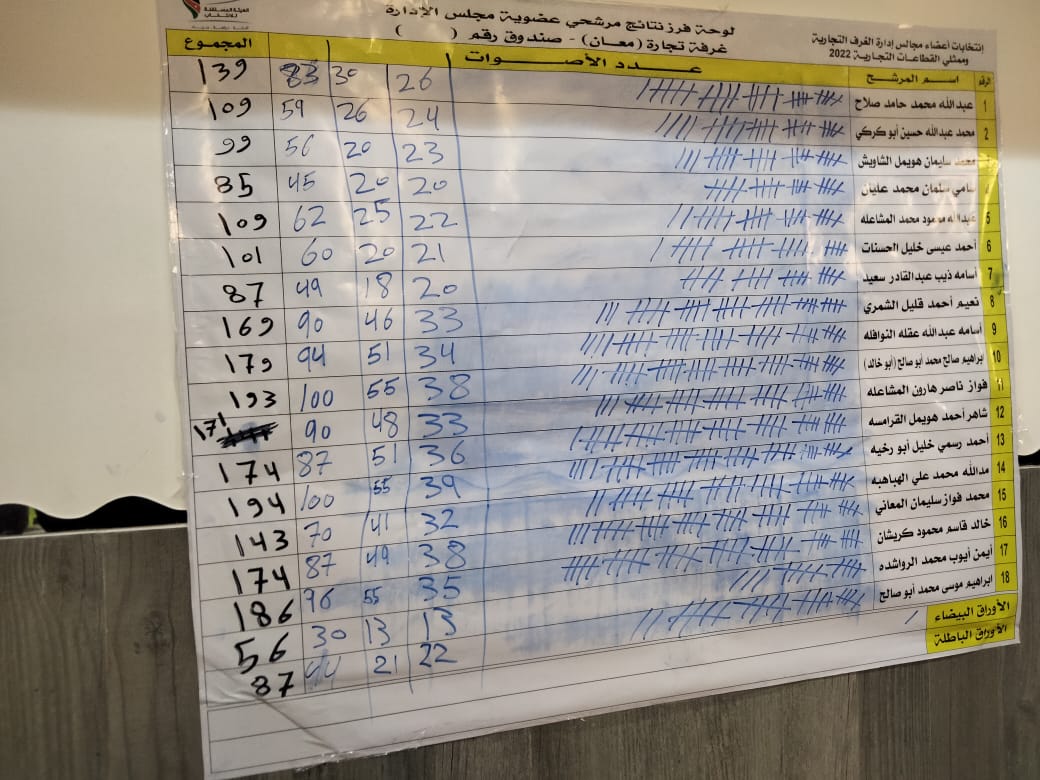 الهيئة المستقلة
للانتخاب
إنتخابات أعضاء مجالس إدارة الغرف التجارية
وممثلي القطاعات التجارية 2022
لوحة فرز نتائج مرشحي عضوية مجلس الإدارة
غرفة تجارة (معان) - صندوق رقم ( )
الرقم اسم المرشح عدد الأصوات المجموع
1 عبدالله محمد حامد صلاح 26 30 83 139
2 محمد عبدالله حسين أبو كركي 24 26 59 109
محمد سليمان هويمل الشاويش 23 20 56 99
سامي سلمان محمد عليان 20 20 45 85
5 عبدالله محمود محمد المشاعله 22 25 62 109
6 أحمد عيسى خليل الحسنات 21 20 60 101
7 أسامه ذيب عبدالقادر سعيد 20 18 49 87
8 نعيم أحمد قليل الشمري 33 46 90 169
9 أسامه عبدالله عقله النوافله 34 51 94 179
10 ابراهيم صالح محمد أبو صالح (أبو خالد) 38 55 100 193
11 فواز ناصر هارون المشاعله 33 48 90 171
12 شاهر أحمد هويمل القرامسه 36 51 87 174
13 أحمد رسمي خليل أبو رخيه 39 55 100 194
14 مدالله محمد علي الهباهبه 32 41 70 143
15 محمد فواز سليمان المعاني 38 49 87 174
16 خالد قاسم محمود كريشان 35 55 96 186
17 أيمن أيوب محمد الرواشده 13 13 30 56
18 ابراهيم موسى محمد أبو صالح 22 21 44 87
الأوراق البيضاء
الأوراق الباطلة